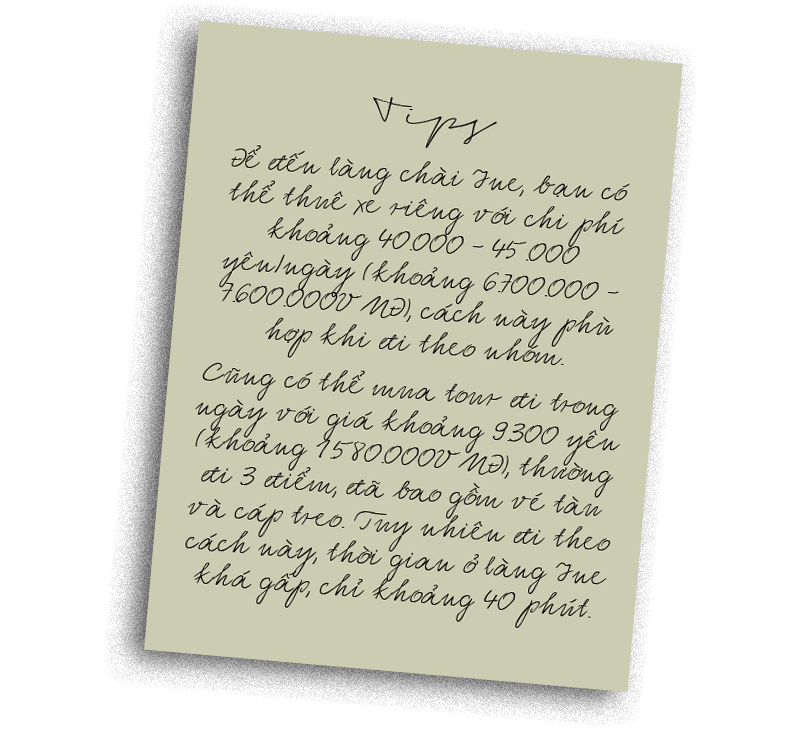 Tips
Để đến làng chài Ine, bạn có
thể thuê xe riêng với chi phí
khoảng 40.000 - 45.000
yên/ngày (khoảng 6.700.000 -
7.600.000 VNĐ), cách này phù
hợp khi đi theo nhóm.
Cũng có thể mua tour đi trong
ngày với giá khoảng 9.300 yên
(khoảng 1.580.000 VNĐ), thường
đi 3 điểm, đã bao gồm vé tàu
và cáp treo. Tuy nhiên đi theo
cách này, thời gian ở làng Ine
khá gấp, chỉ khoảng 40 phút.